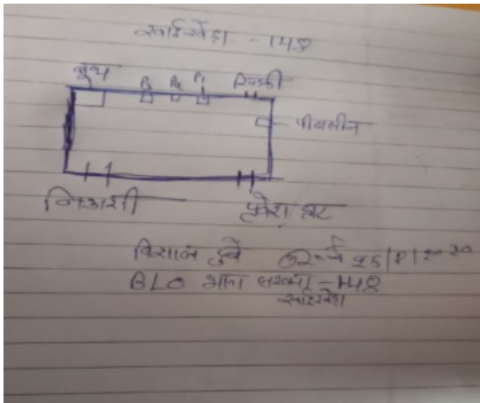 खाईखेड़ा - 148
बुथ P3 P2 P1 खिड़की
पीठासीन
निकासी प्रवेश द्वार
विशाल दुबे
BLO भाग संख्या - 148
खाईखेड़ा